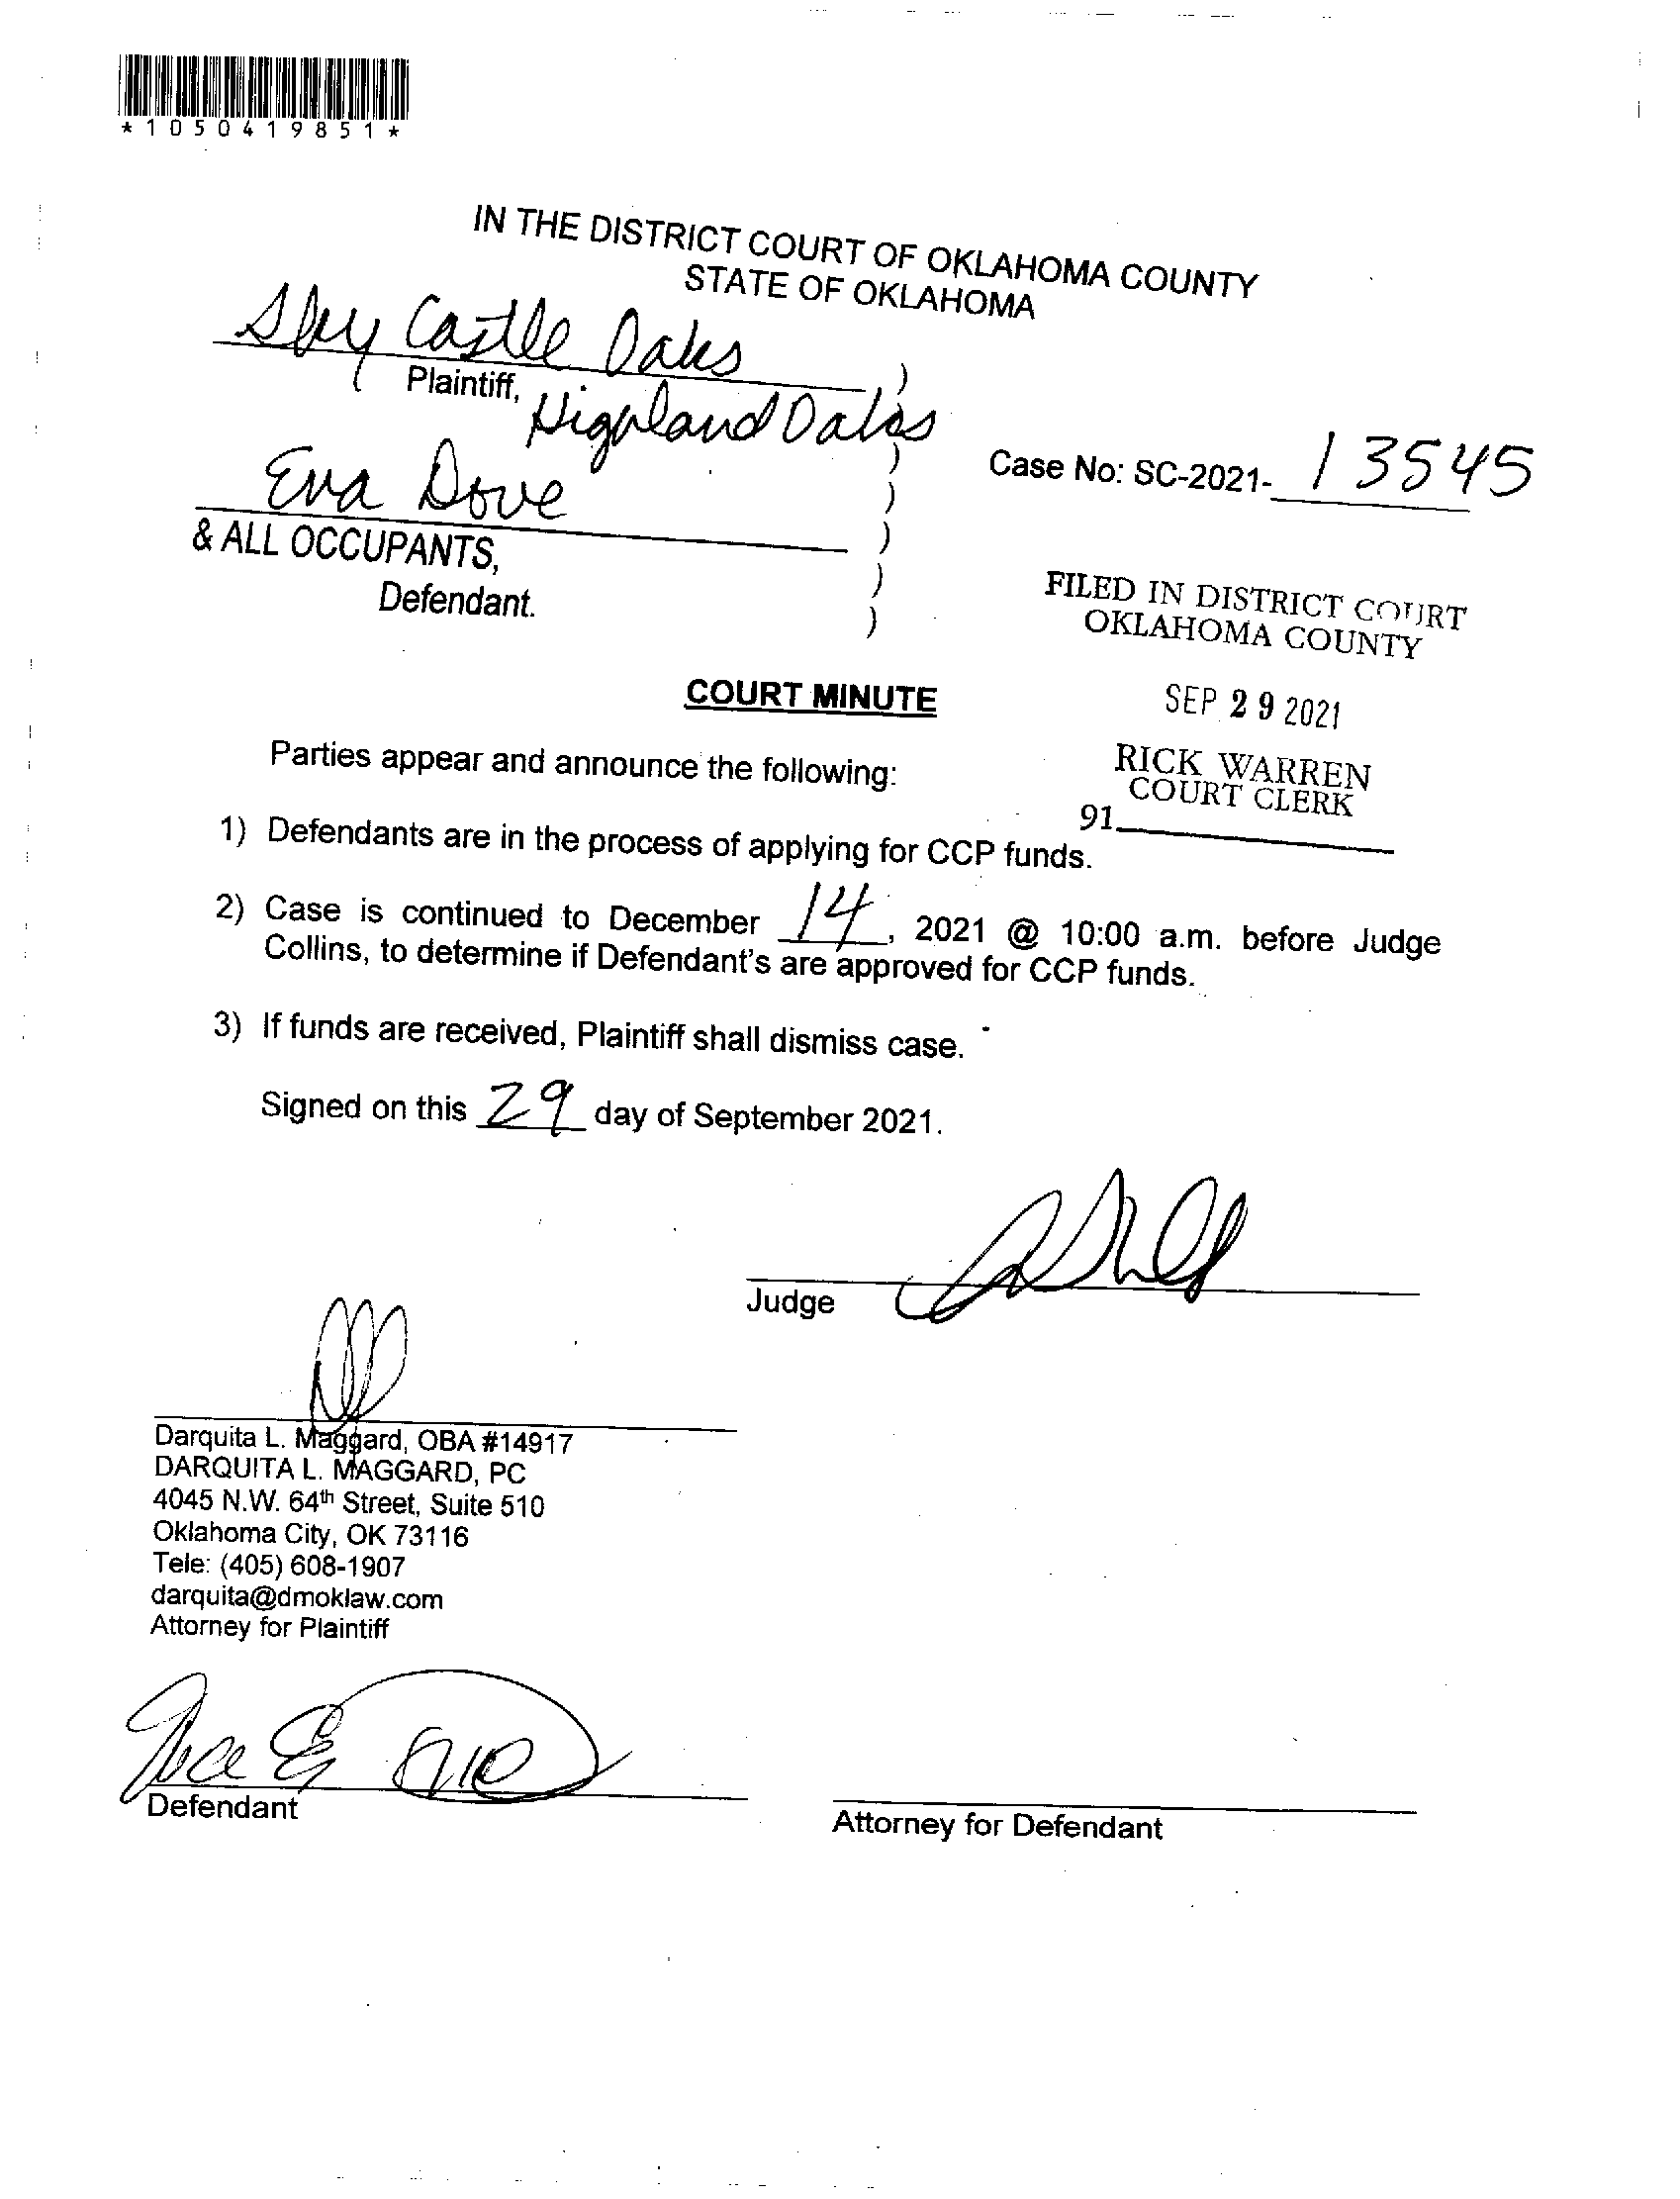 *1050419851*
IN THE DISTRICT COURT OF OKLAHOMA COUNTY
STATE OF OKLAHOMA
Sky Castle Oaks )
Plaintiff, Highland Oaks
)
Eva Dove ) Case No: SC-2021- 13545
& ALL OCCUPANTS, )
)
Defendant. )
FILED IN DISTRICT COURT
OKLAHOMA COUNTY
COURT MINUTE
SEP 29 2021
Parties appear and announce the following:
RICK WARREN
COURT CLERK
91
1) Defendants are in the process of applying for CCP funds.
2) Case is continued to December 14, 2021 @ 10:00 a.m. before Judge
Collins, to determine if Defendant's are approved for CCP funds.
3) If funds are received, Plaintiff shall dismiss case.
Signed on this 29 day of September 2021.
Judge
Darquita L. Maggard, OBA #14917
DARQUITA L. MAGGARD, PC
4045 N.W. 64th Street, Suite 510
Oklahoma City, OK 73116
Tele: (405) 608-1907
darquita@dmoklaw.com
Attorney for Plaintiff
Defendant
Attorney for Defendant